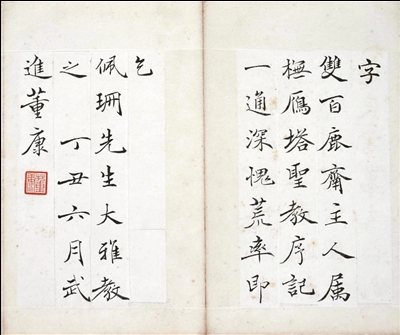 字
雙百鹿齋主人属
橅鴈塔聖教序記
一通深愧荒率即
乞
佩珊先生大雅教
之 丁丑六月武
進董康